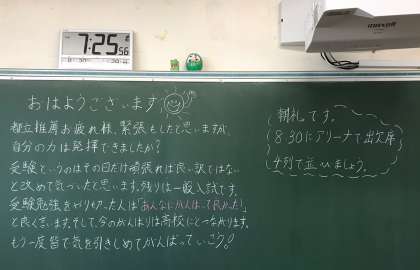 7:25 56
おはようございます
都立推薦お疲れ様、緊張もしたと思いますが、
自分の力は発揮できましたか?
受験というのはその日だけ頑張れば良い訳ではない
と改めて気づいたと思います。残りは一般入試です。
受験勉強をやり切った人は「あんなにがんばって良かった!」
と良く言います。そして、今のがんばりは高校にとつながります。
もう一度皆で気を引きしめてがんばっていこう!!
朝礼です。
8:30にアリーナで出欠席
4列で並いましょう。